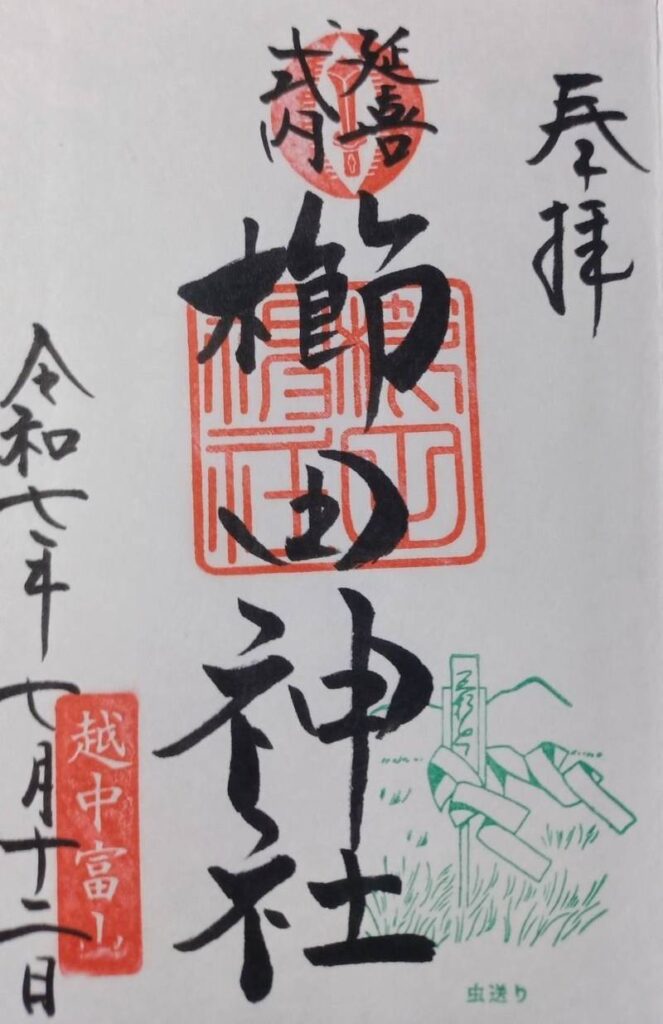 奉拝
延喜
式内
櫛田神社
令和七年七月十二日
越中富山
虫送り